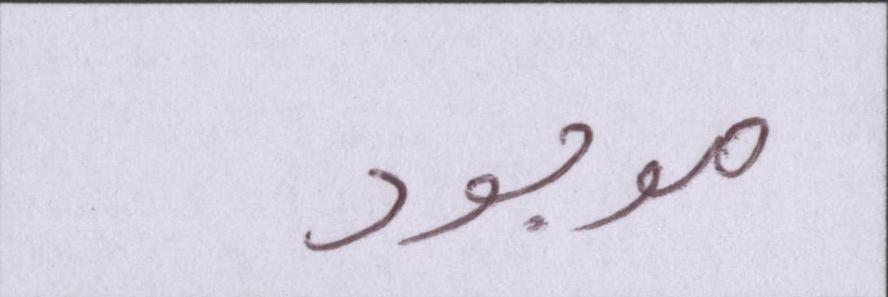 موجود